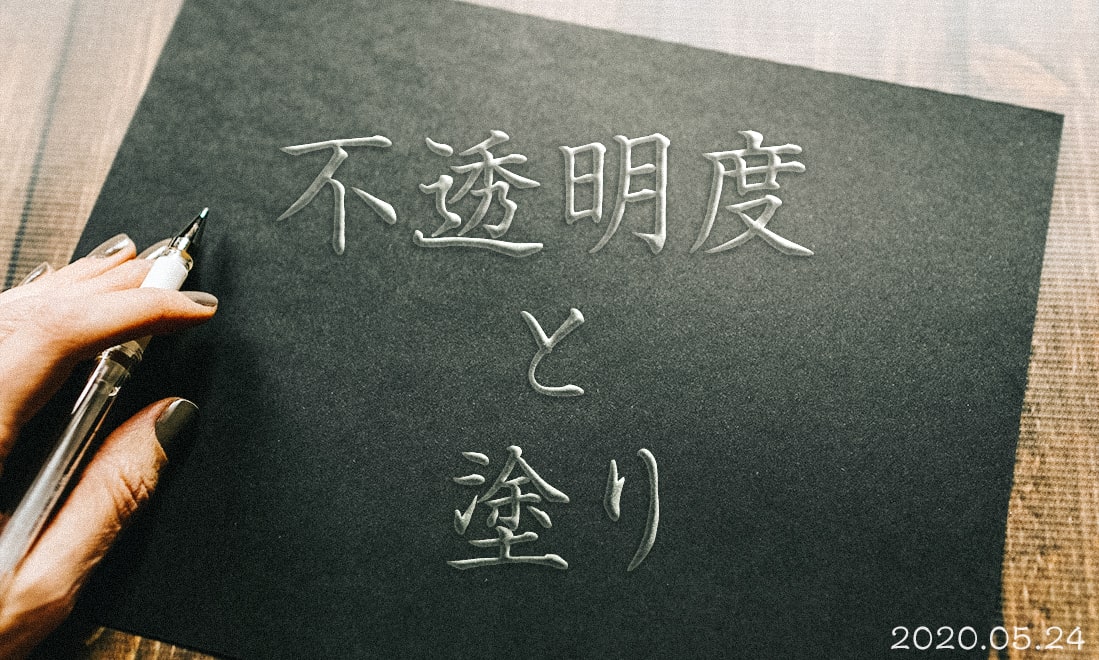 不透明度
と
塗り
2020.05.24